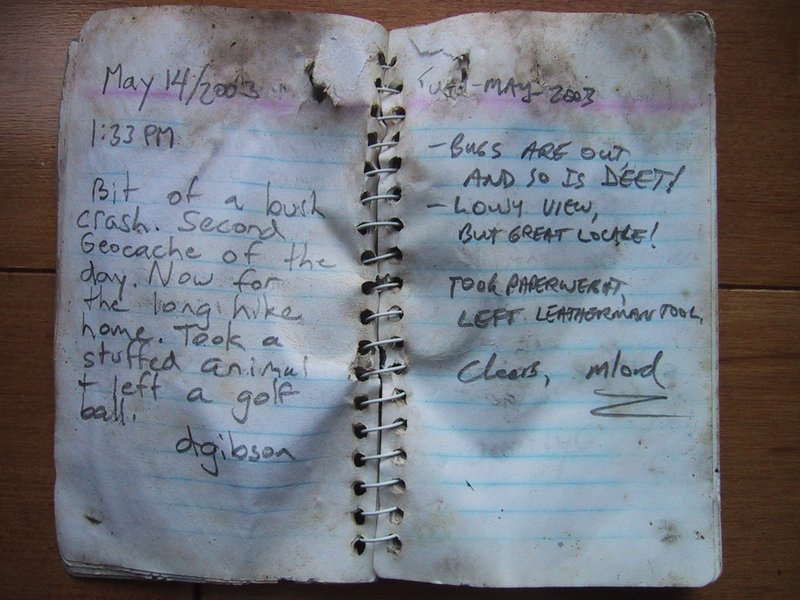 May 14/2003
1:33 PM
Bit of a bush
crash. Second
Geocache of the
day. Now for
the long hike
home. Took a
stuffed animal
+ left a golf
ball.
dgibson
-MAY-2003
- BUGS ARE OUT,
AND SO IS DEET!
- LOUSY VIEW,
BUT GREAT LOCALE!
TOOK PAPERWEIGHT,
LEFT LEATHERMAN TOOL.
Cheers, mlord